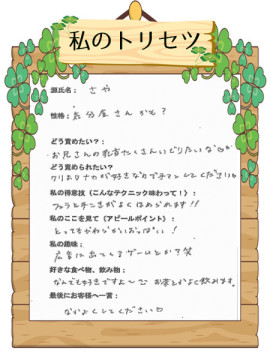 私のトリセツ
源氏名： さや
性格： 気分屋さんかも？
どう責めたい？：
お兄さんの乳首たくさんいじりたいな♡
どう責められたい？
クリもナカが好きなので手マンしてください♡
私の得意技（こんなテクニック味わって！）：
フェラと手コキがよくほめられます！！
私のここを見て（アピールポイント）：
とってもやわらかいおっぱい！
私の趣味：
広告に出てくるゲームとか？笑
好きな食べ物、飲み物：
なんでも好きですよ〜 お茶とかよく飲みます。
最後にお客様へ一言：
なかよくしてください♡